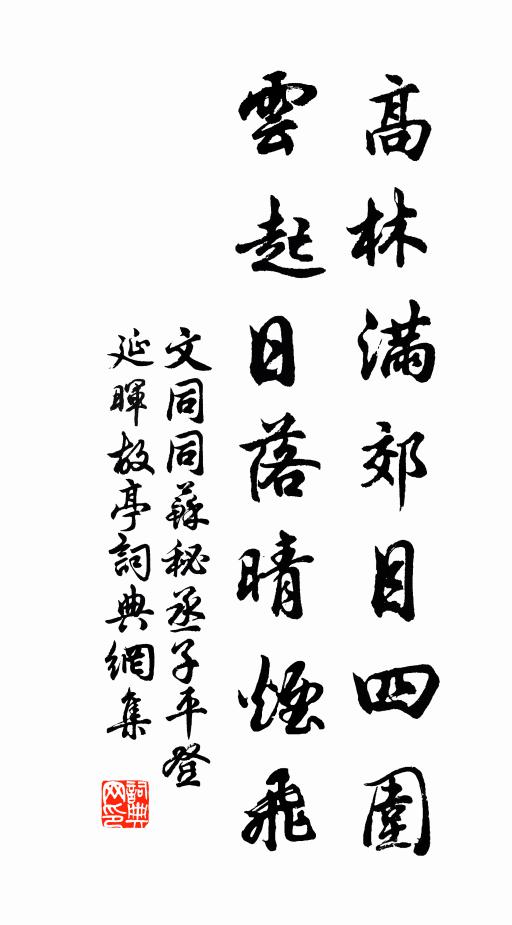 高林滿郊目四圍
雲起日落晴煙飛
文同同蘇秘丞子平登
延暉故亭詞典網集
詞典
网印